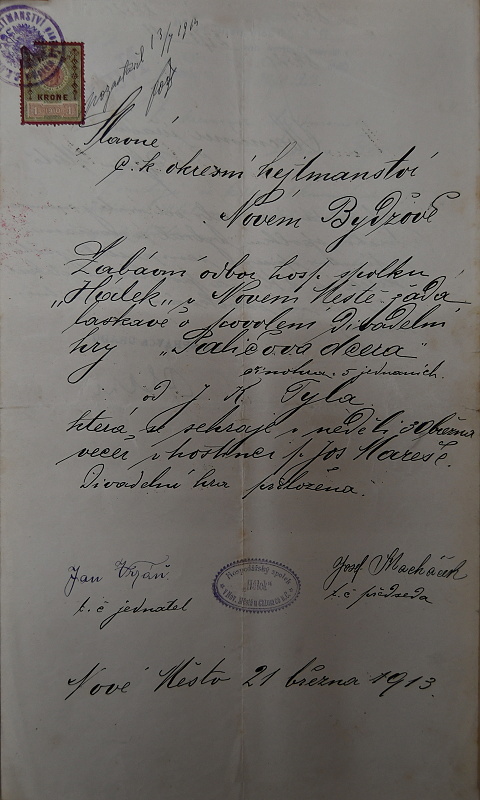 HEJTMANSTVÍ
KRONE
13/4 1913
Slavné
c. k. okresní hejtmanství
Novém Bydžově
Zábavní odbor hosp. spolku
„Hálek" v Novém Městě žádá
laskavě o povolení divadelní
hry „Paličova dcera"
činohra o 5 jednáních.
od J. K. Tyla.
která se sehraje v neděli 30 března
večer v hostinci p. Jos Mareše.
Divadelní hra přiložena.
Jan
t. č jednatel
Hospodářský spolek
„Hálek"
Josef Macháček
t. č předseda
Nové Město 21 března 1913.